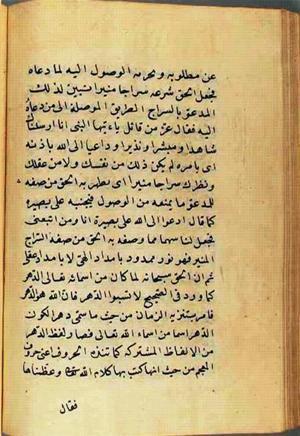 عن مطلوبه ويحرمه الوصول اليه لما دعاه
فجعل الحق شرعه سراجا منيرا تبين لذلك
المدعو بالسراج الطريق الموصلة الى من دعاه
اليه فقال عز من قائل يا ايها النبى انا ارسلناك
شاهدا ومبشرا ونذيرا وداعيا الى الله باذنه
اى بامره لم يكن ذلك من نفسك ولا من عقلك
ونظرك سراجا منيرا اى يظهر به الحق من صفه
للمدعو ما يمنعه من الوصول فيجتنبه على بصيرة
كما قال ادعوا الى الله على بصيرة انا ومن اتبعنى
فجعل لنا سهما مما وصفه به الحق من صفة السراج
المنير فهو نور ممدود بامداد الهى لا بامداد عقلى
ثم ان الحق سبحانه لما كان من اسمائه تعالى الدهر
كما ورد فى الصحيح لا تسبوا الدهر فان الله هو الدهر
فامر بتنزيه الزمان من حيث ما سمى دهرا لكون
الدهر اسما من اسماء الله تعالى فصار لفظ الدهر
من الالفاظ المشتركه كما تنزه الحروف اعنى حروف
المعجم من حيث انها كتب بها كلام الله تعالى وعظمناها
فقال